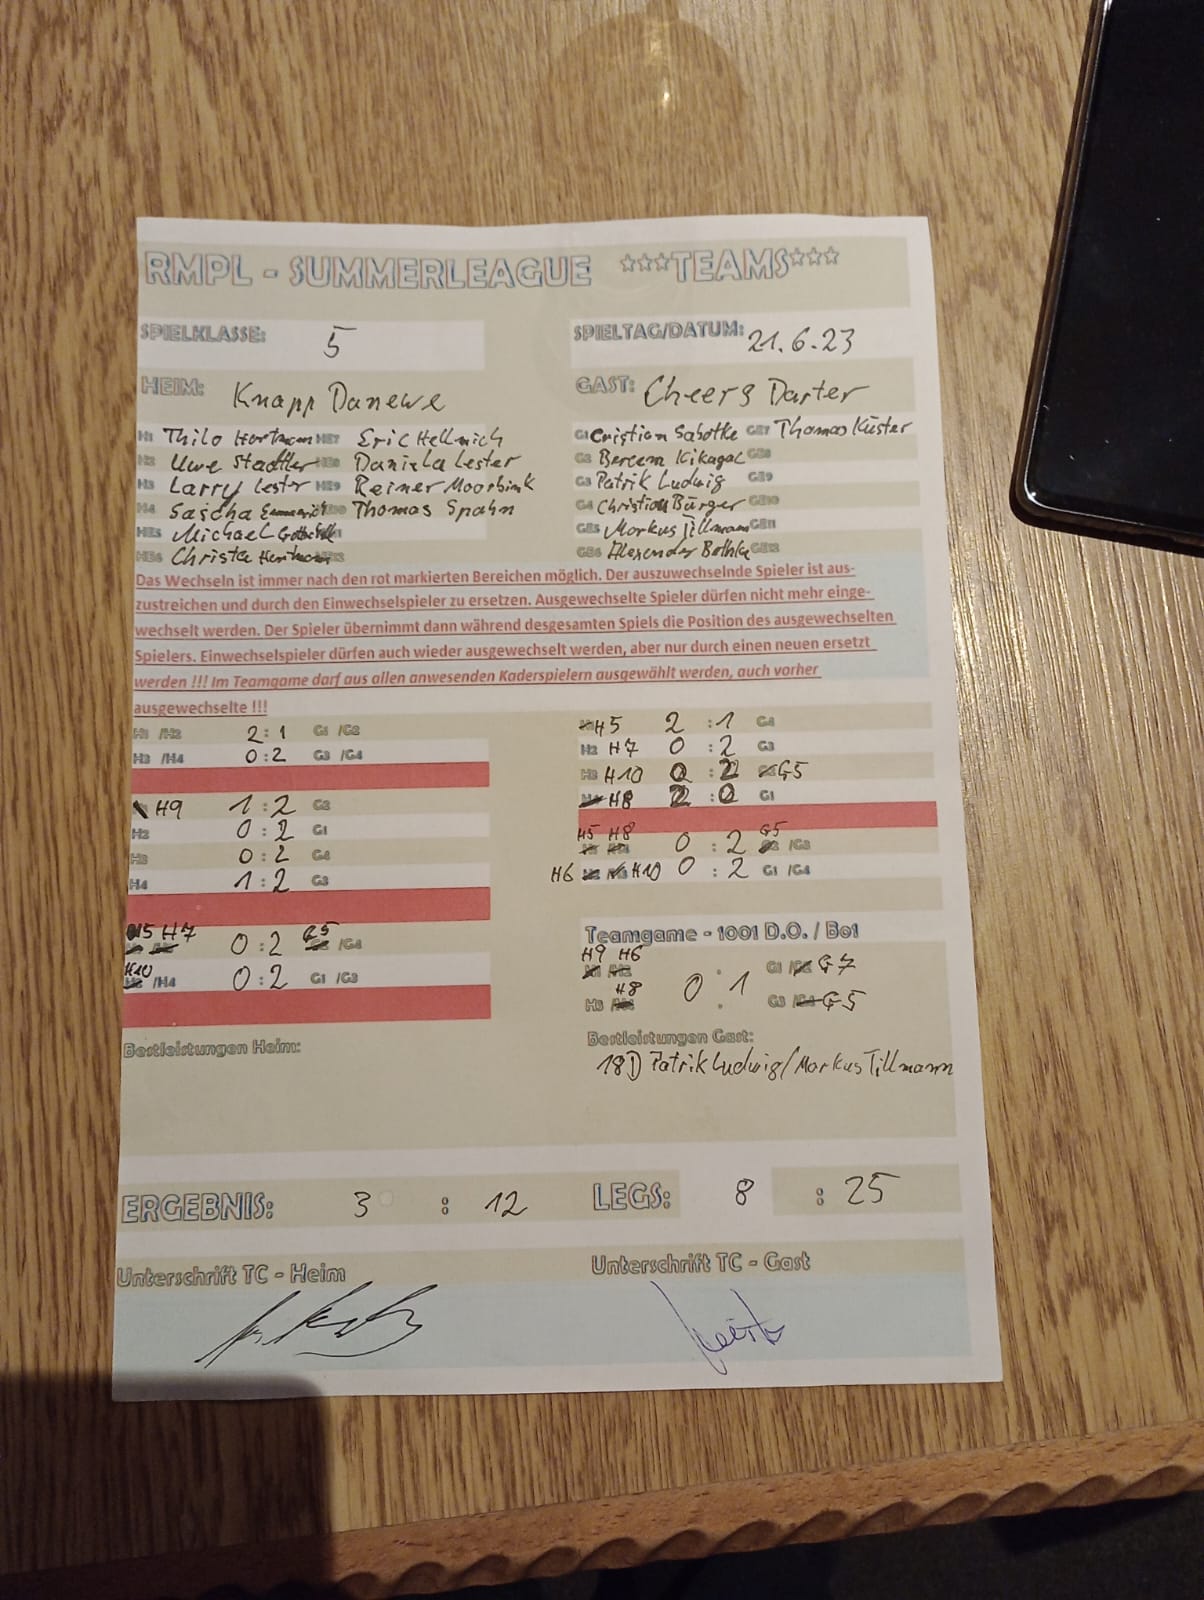 RMPL - SUMMERLEAGUE ***TEAMS***
SPIELKLASSE: 5 SPIELTAG/DATUM: 21.6.23
HEIM: Knapp Danewe GAST: Cheers Darter
H1 Thilo Hartmann HE7 Eric Hellmich G1 Cristian Sabotke GE7 Thomas Küster
H2 Uwe Stadtler HE8 Daniela Lester G2 Bercem Kikagac GE8
H3 Larry Lester HE9 Reiner Moorbink G3 Patrik Ludwig GE9
H4 Sascha Emmerich HE10 Thomas Spahn G4 Christian Bürger GE10
HE5 Michael GE5 Markus Tillmann GE11
HE6 Christa Hartmann HE12 GE6 Alexander Bothke GE12
Das Wechseln ist immer nach den rot markierten Bereichen möglich. Der auszuwechselnde Spieler ist aus-
zustreichen und durch den Einwechselspieler zu ersetzen. Ausgewechselte Spieler dürfen nicht mehr einge-
wechselt werden. Der Spieler übernimmt dann während desgesamten Spiels die Position des ausgewechselten
Spielers. Einwechselspieler dürfen auch wieder ausgewechselt werden, aber nur durch einen neuen ersetzt
werden !!! Im Teamgame darf aus allen anwesenden Kaderspielern ausgewählt werden, auch vorher
ausgewechselte !!!
H1 /H2 2:1 G1 /G2
H3 /H4 0:2 G3 /G4
H9 1:2 G2
H2 0:2 G1
H3 0:2 G4
H4 1:2 G3
H5 H7 0:2 G5 /G4
H10 /H4 0:2 G1 /G3
H5 2:1 G4
H2 H7 0:2 G3
H3 H10 0:2 G5
H8 2:0 G1
H5 H8 0:2 G5 /G3
H6 H10 0:2 G1 /G4
Teamgame - 1001 D.O. / Bo1
H9 H6 G1 / G7
0:1
H3 / H8 G3 / G5
Bestleistungen Heim:
Bestleistungen Gast:
18D Patrik Ludwig/Markus Tillmann
ERGEBNIS: 3 : 12 LEGS: 8 : 25
Unterschrift TC - Heim Unterschrift TC - Gast